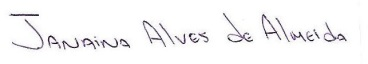 Janaina Alves de Almeida